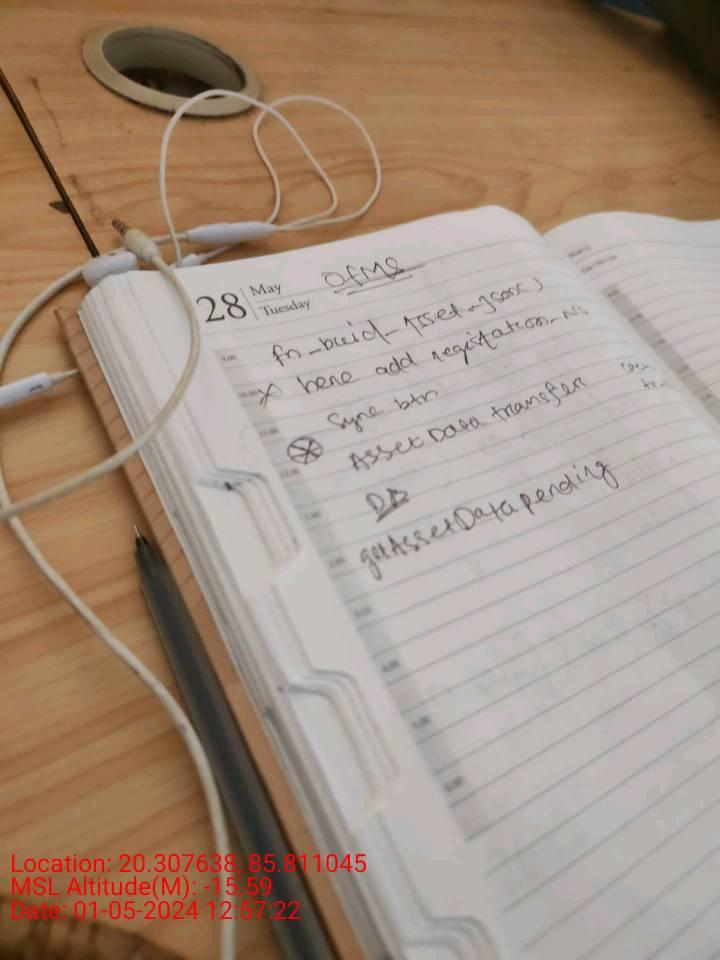 28 May
Tuesday
OFMS
fn_build_Asset_Json()
9.00
10.00 x here add registation_No
Sync btn
11.00
Asset Data transfer
12.00
DB
1.00
getAssetDatapending
2.00
3.00
4.00
5.00
6.00
Location: 20.307638, 85.811045
MSL Altitude(M): -15.59
Date: 01-05-2024 12:57:22